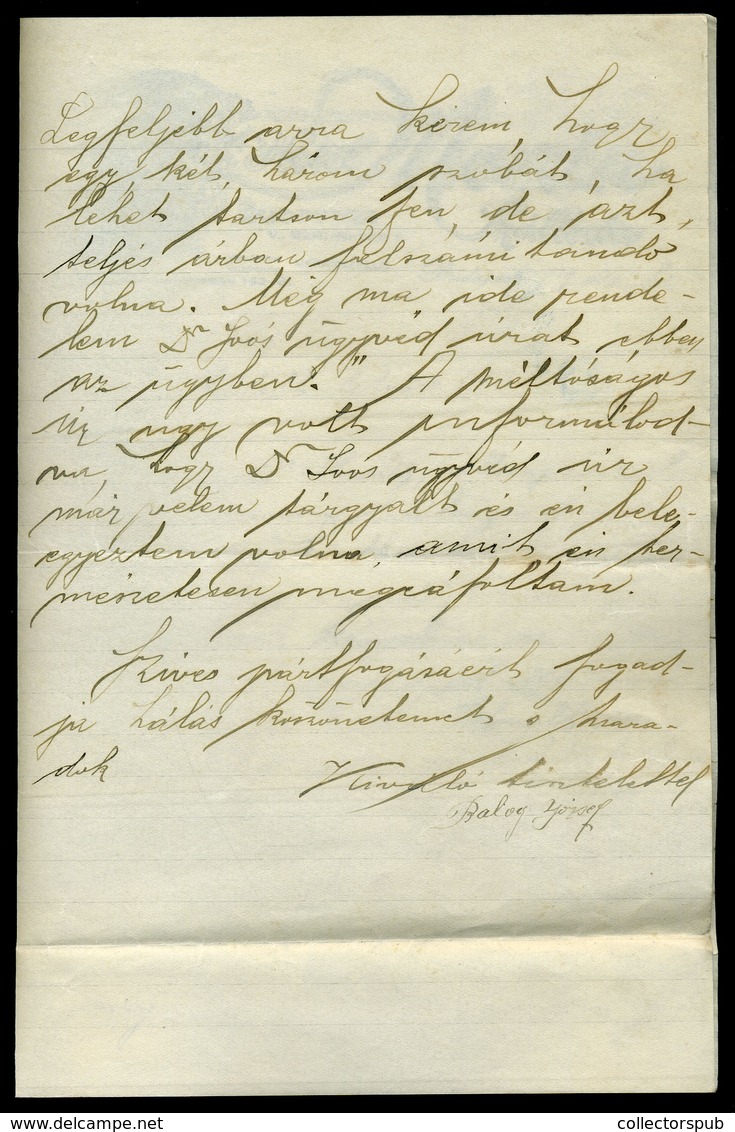 Legfeljebb arra kérem, hogy
egy, két, három szobát, ha
lehet tartson fen, de azt,
teljes árban felszámitandó
volna. Még ma ide rende-
lem Dr Joós ügyvéd urat ebben
az ügyben." A méltóságos
úr ugy volt informálod-
va, hogy Dr Joós ügyvéd úr
már velem tárgyalt és én bele-
egyeztem volna, amit én ter-
mészetesen megcáfoltam.
Szives pártfogásáért fogad-
ja hálás köszönetemet s mara-
dok
Kiváló tisztelettel
Balog József
www.delcampe.net
collectorspub